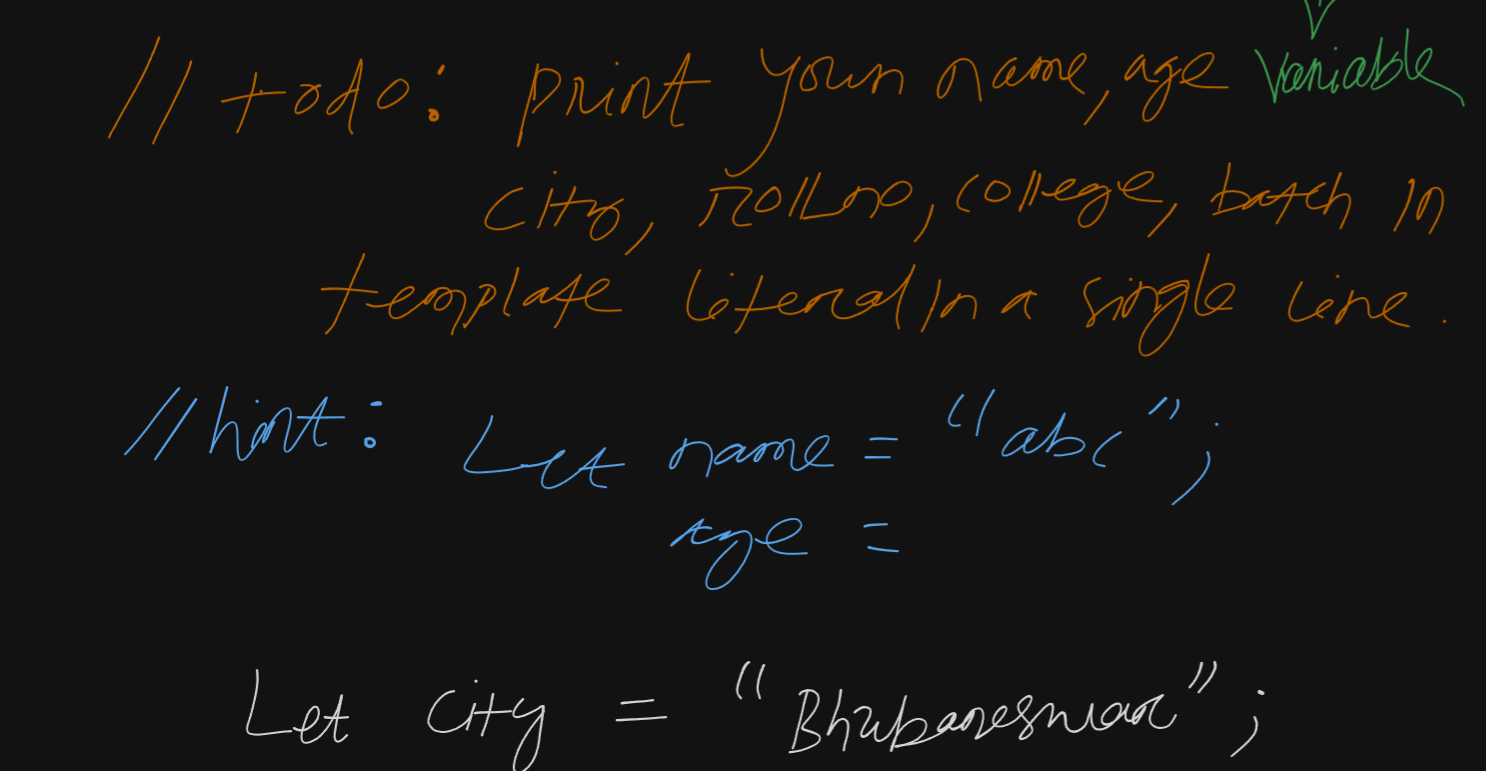 // todo: print your name, age variable
city, rollno, college, batch in
template literal in a single line.
// hint: Let name = "abc";
age =
Let city = "Bhubaneswar";